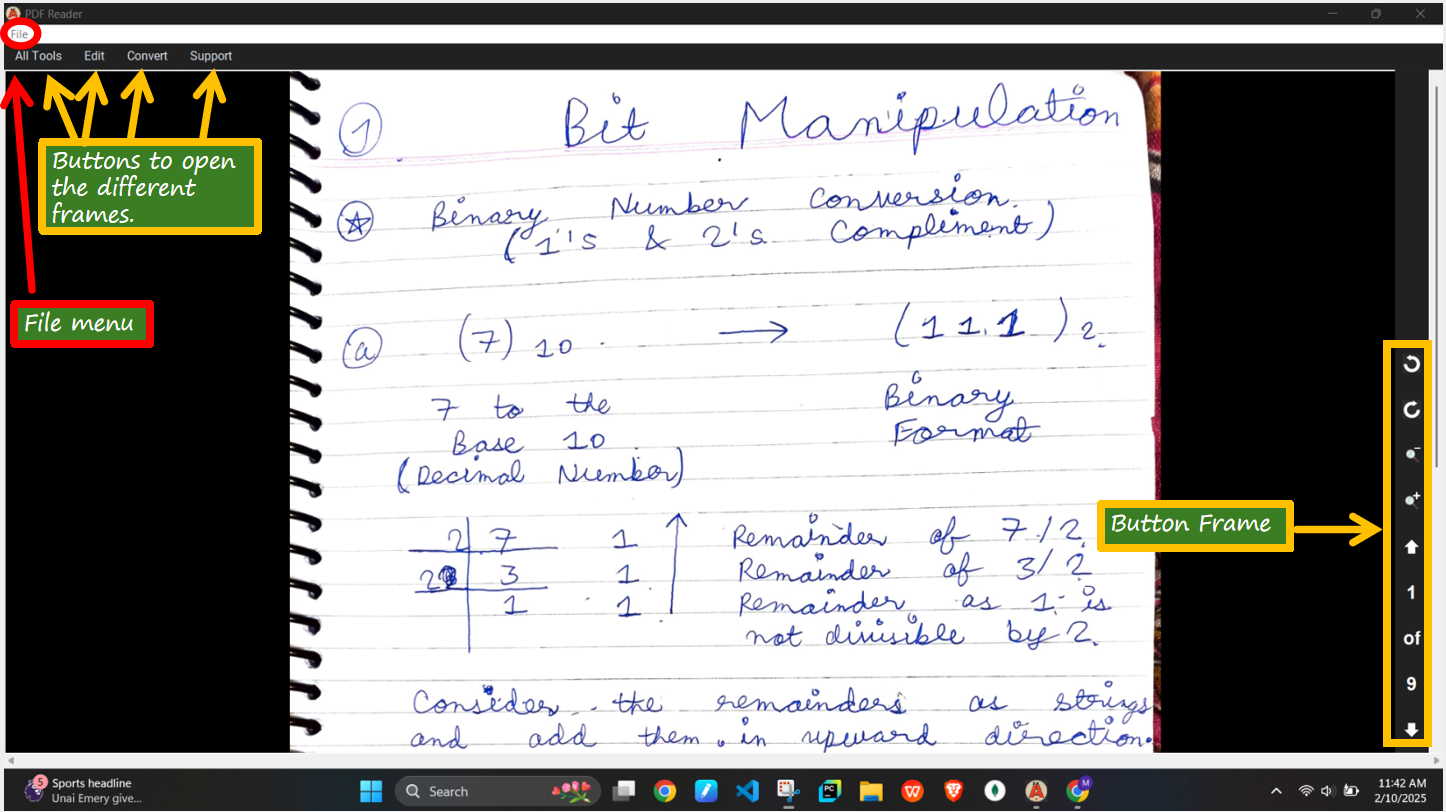 PDF Reader
File
All Tools Edit Convert Support
Buttons to open
the different
frames.
File menu
1 Bit Manipulation
Binary Number Conversion.
(1's & 2's Compliment)
a (7)10 → (111)2.
7 to the
Base 10
(Decimal Number)
Binary
Format
2 7 1 Remainder of 7/2
2 3 1 Remainder of 3/2
1 1 Remainder as 1 is
not divisible by 2.
Consider the remainders as strings
and add them in upward direction.
Button Frame
1
of
9
5
Sports headline
Unai Emery give...
Search
PC
M
11:42 AM
2/10/2025